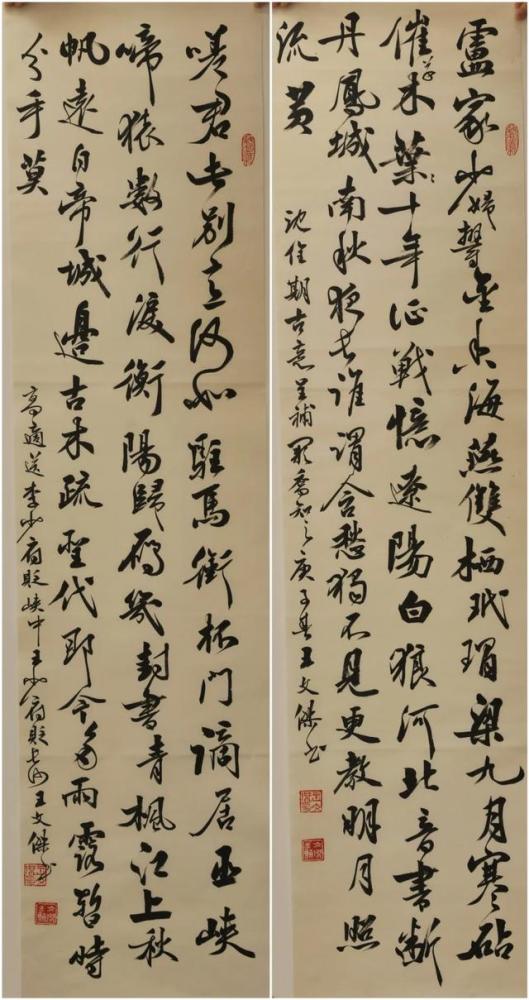 盧家少婦鬱金香海燕雙栖玳瑁梁九月寒砧
催木葉十年征戰憶遼陽白狼河北音書斷
丹鳳城南秋夜長誰謂含愁獨不見更教明月照
流黃
沈佺期古意呈補闕喬知之庚子春王文傑書
嗟君此別意何如駐馬銜杯問謫居巫峽
啼猿數行淚衡陽歸雁幾封書青楓江上秋
帆遠白帝城邊古木疏聖代即今多雨露暫時
分手莫
高適送李少府貶峽中王少府貶長沙王文傑書